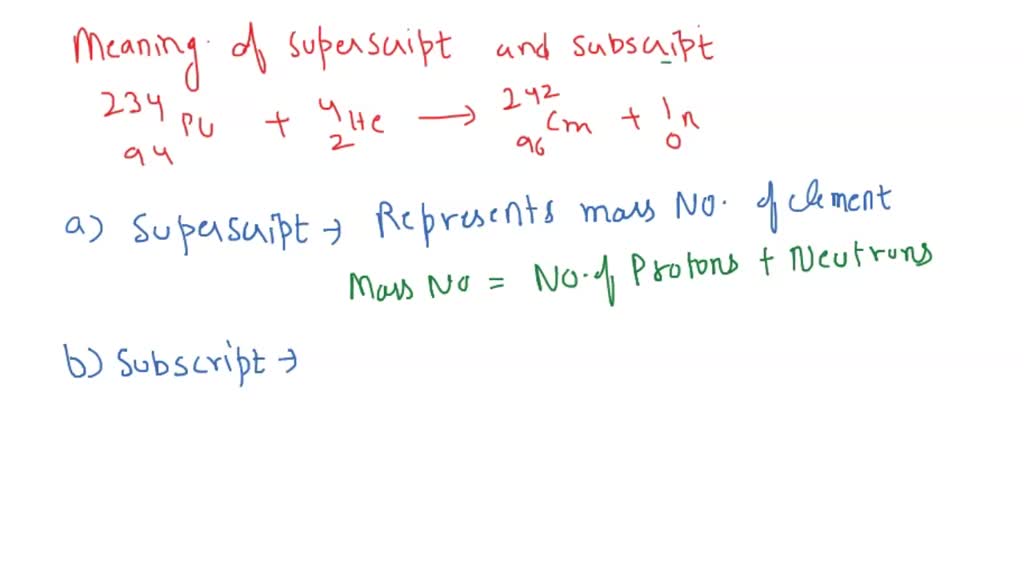 Meaning of superscript and subscript
²³⁴₉₄Pu + ⁴₂He → ²⁴²₉₆Cm + ¹₀n
a) Superscript → Represents mass No. of element
Mass No = No. of Protons + Neutrons
b) Subscript →